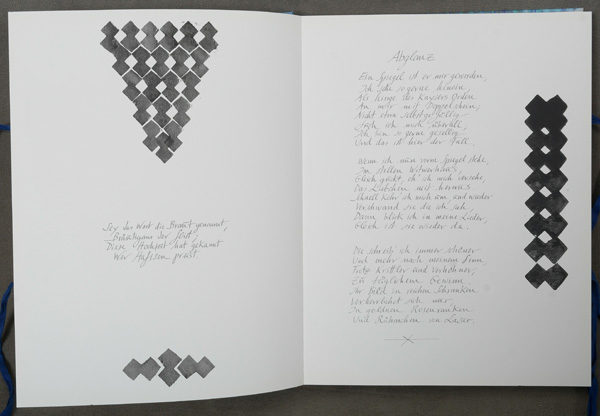 Sey das Wort die Braut genannt,
Bräutigam der Geist;
Diese Hochzeit hat gekannt
Wer Hafisen preist.
Abglanz
Ein Spiegel ist er mir geworden,
Ich sehe so gerne hinein,
Als hinge des Kaysers Orden
An mir mit Doppelschein;
Nicht etwa selbstgefällig
Such ich mich überall,
Ich bin so gerne gesellig,
Und das ist hier der Fall.
Wenn ich nun vorm Spiegel stehe,
Im stillen Witwerhaus,
Gleich guckt, eh' ich mich versehe,
Das Liebchen mit heraus.
Schnell kehr' ich mich um, und wieder
Verschwand sie die ich sah,
Dann blick ich in meine Lieder,
Gleich ist sie wieder da.
Die schreib ich immer schöner
Und mehr nach meinem Sinn,
Trotz Krittler und Verhöhner,
Zu täglichem Gewinn.
Ihr Bild in reichen Schranken
Verherrlichet sich nur,
In goldnen Rosenranken
Und Rähmchen von Lasur.